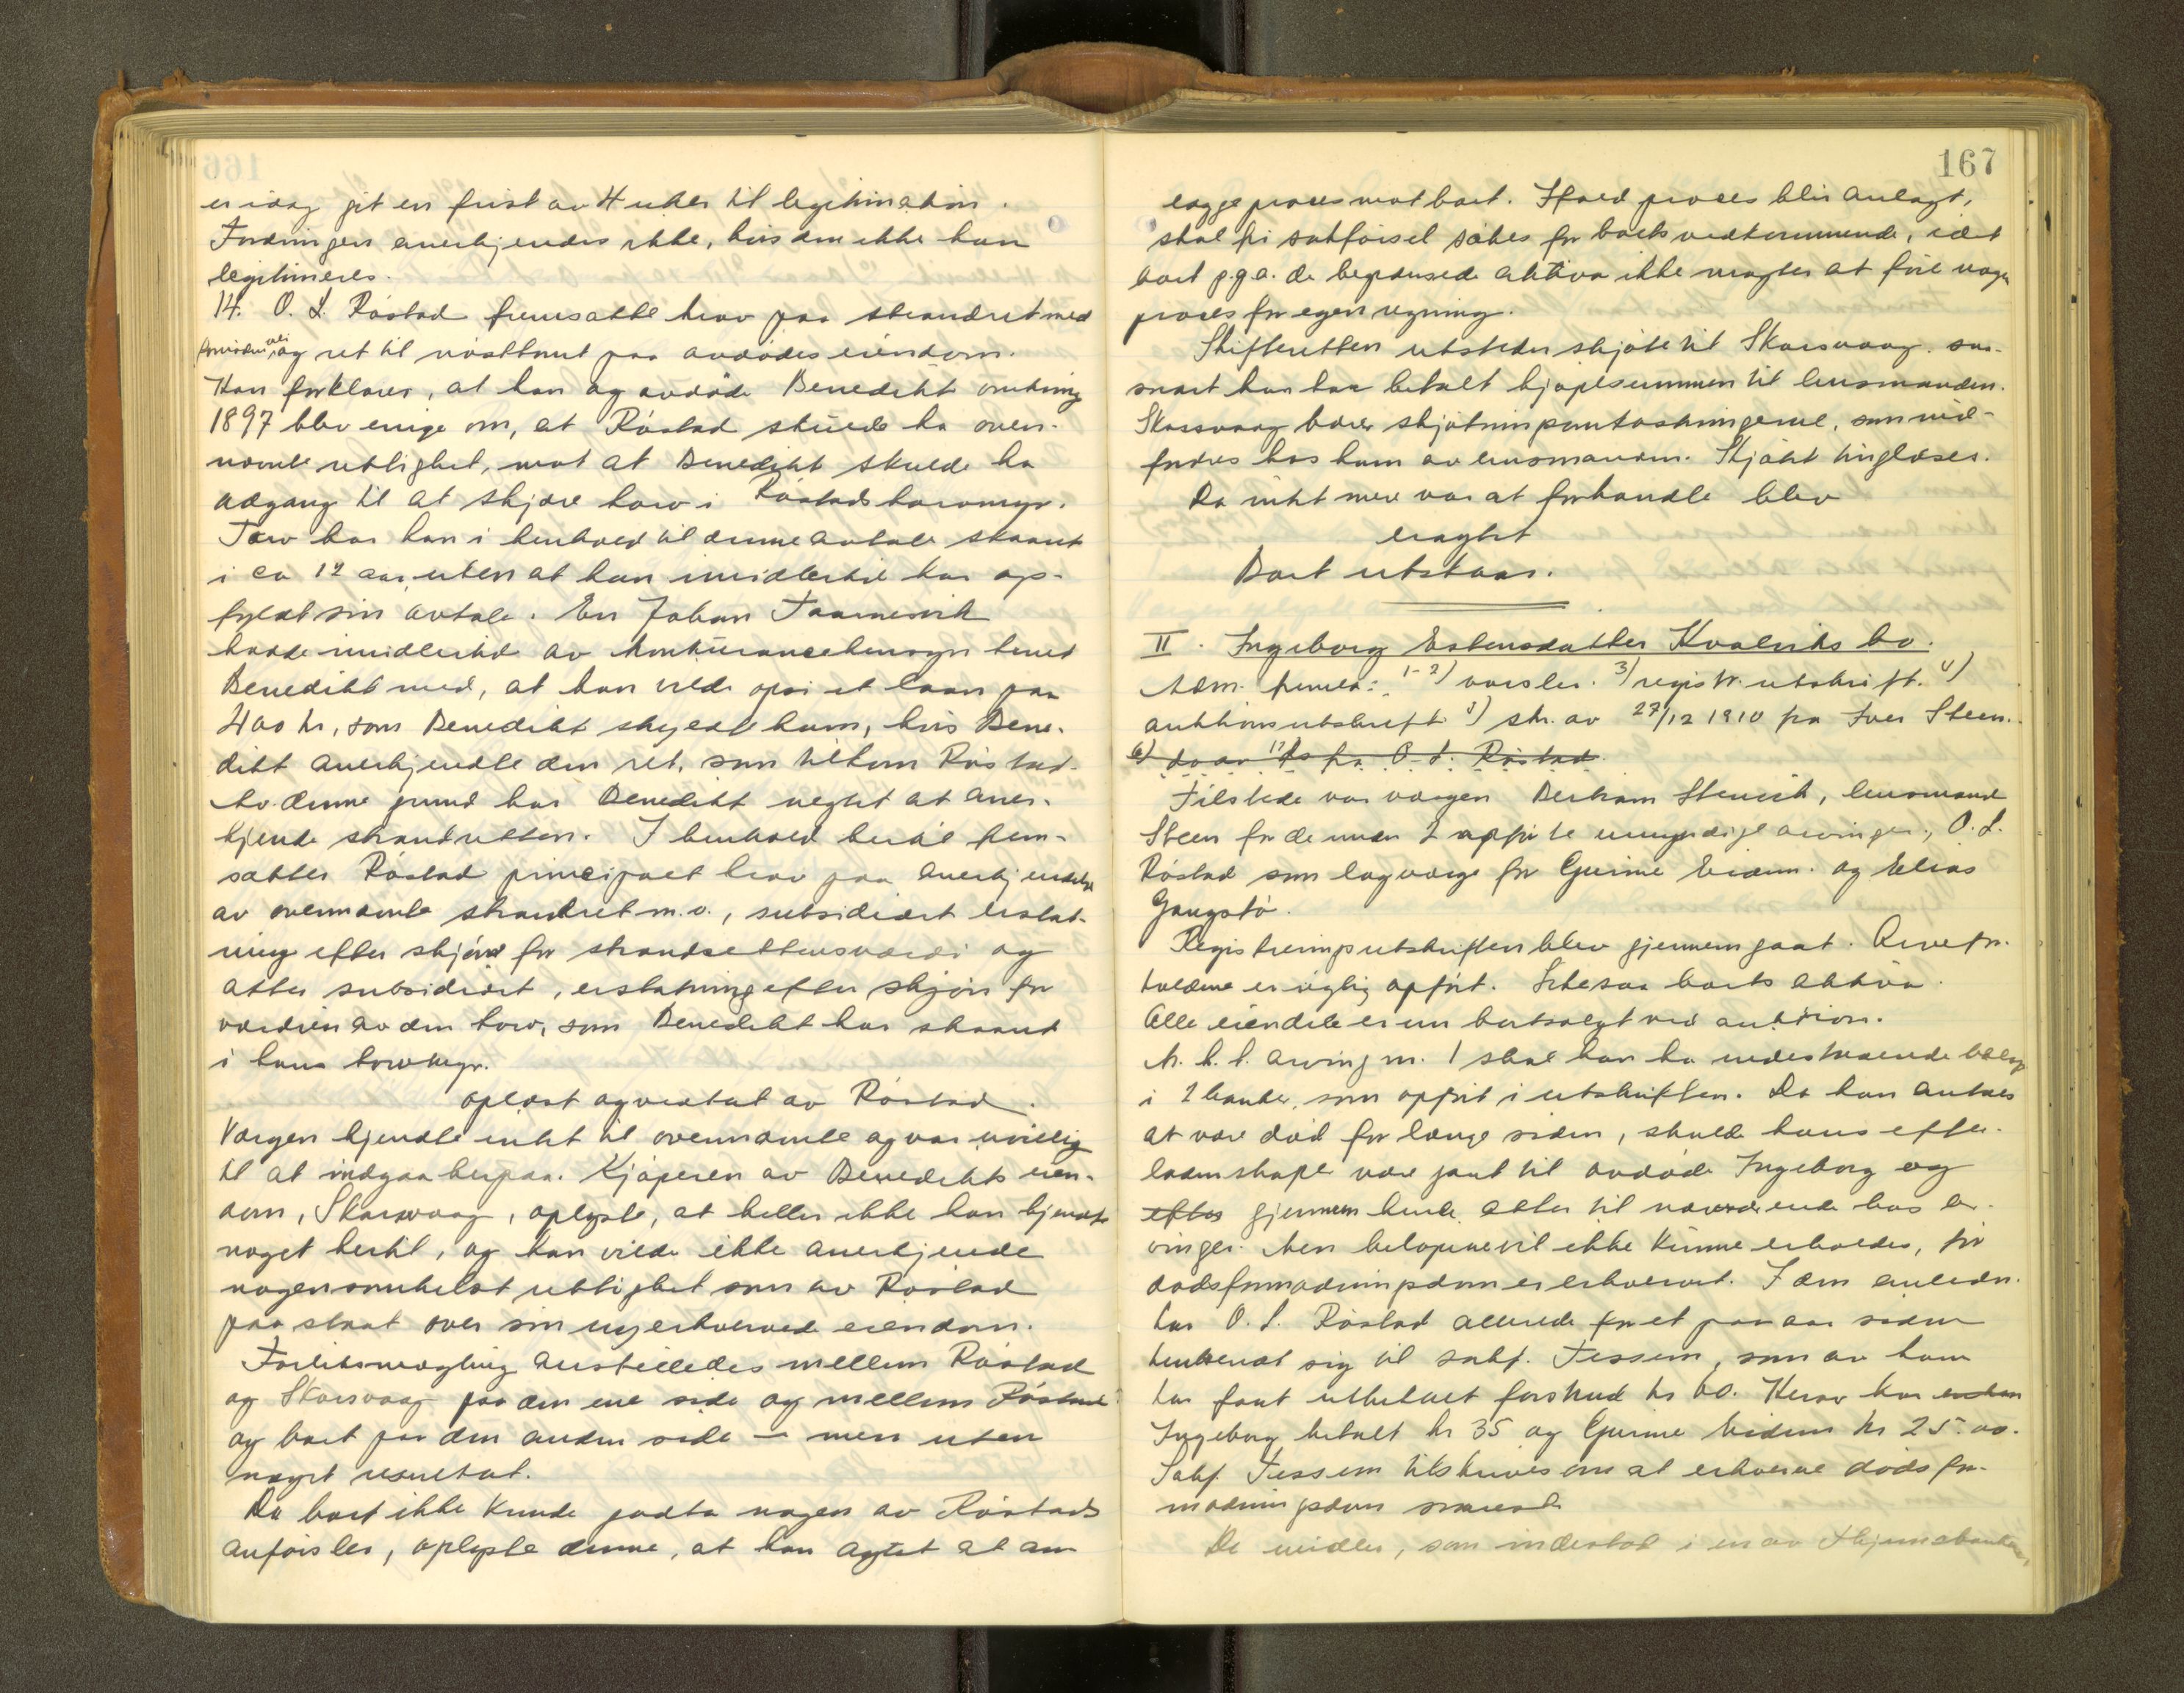 166
er idag git en frist av 4 uker til legitimation.
Fordringen anerkjendes ikke, hvis den ikke kan
legitimeres.
14. O. L. Röstad fremsatte krav paa strandret med
og ret til nösttomt paa avdödes eiendom.
Han forklarer, at han og avdöde Benedikt omkring
1897 blev enige om, at Röstad skulde ha oven-
nævnte rettighet, mot at Benedikt skulde ha
adgang til at skjære torv i Röstads torvmyr.
Torv har han i henhold til denne avtale skaaret
i ca 12 aar uten at han imidlertid har op-
fyldt sin avtale. En Johan Taarnesvik
hadde imidlertid av konkurancehensyn truet
Benedikt med, at han vilde opsi et laan paa
400 kr, som Benedikt skyldte ham, hvis Bene-
dikt anerkjendte den ret, som tilkom Röstad.
Av denne grund har Benedikt negtet at aner-
kjende strandretten. I henhold hertil frem-
sætter Röstad principalt krav paa anerkjendelse
av ovennævnte strandret m.v., subsidiært erstat-
ning efter skjön for strandrettensværdi og
atter subsidiært, erstatning efter skjön for
værdien av den torv, som Benedikt har skaaret
i hans torvmyr.
oplæst og vedtat av Röstad.
Værgen kjendte intet til ovennævnte og var uvillig
til at indgaa herpaa. Kjöperen av Benedikts eien-
dom, Skarsvaag, oplyste, at heller ikke han kjendte
noget hertil, og han vilde ikke anerkjende
nogensomhelst rettighet som av Röstad
paastaat over sin nyerhvervede eiendom.
Forliksmægling anstilledes mellem Röstad
og Skarsvaag paa den ene side og mellem Röstad
og boet paa den anden side – men uten
noget resultat.
Da boet ikke kunde godta nogen av Röstads
anförsler, oplyste denne, at han agtet at an-
167
lægge proces mot boet. Ifald proces blir anlagt,
skal fri sakförsel sökes for boets vedkommende, idet
boet p.g.a. de begrænsede aktiva ikke magter at före nogen
proces for egen regning.
Skifteretten utsteder skjöte til Skarsvaag saa-
snart han har betalt kjöpesummen til lensmanden.
Skarsvaag bærer skjötningsomkostningerne, som ind-
fordres hos ham av lensmanden. Skjötet tinglæses.
Da intet mere var at forhandle blev
eragtet
Boet utstaar.
II. Ingeborg Estensdatter Kvalviks bo.
Adm. fremla: 1-2) varsler. 3) registr. utskrift. 4)
auktionsutskrift 5) skr. av 27/12 1910 fra Iver Steen.
6) do av fra O. L. Röstad.
Tilstede var værgen Bertram Stenvik, lensmand
Steen for de under 2 opförte umyndige arvinger, O. L.
Röstad som lagværge for Gurine Eidem og Elias
Gangstö.
Registreringsutskriften blev gjennemgaat. Arvefor-
holdene er rigtig opfört. Likesaa boets aktiva.
Alle eiendele er nu bortsolgt ved auktion.
A. h. t. arving nr. 1 skal han ha indestaaende belöp
i 2 banker, som opfört i utskriften. Da han antaes
at være död for længe siden, skulde hans efter-
ladenskaper være gaat til avdöde Ingeborg og
efter gjennem hende atter til nærværende bos ar-
vinger. Men belöpene vil ikke kunne erholdes, för
dödsformodningsdom er erhvervet. I den anledn.
har O. L. Röstad allerede for et par aar siden
henvendt sig til sakf. Tessem, som av ham
har faat utbetalt forskud kr 60. Herav har
Ingeborg betalt kr 35 og Gurine Eidem kr 25.00.
Sakf. Tessem tilskrives om at erhverve dödsfor-
modningsdom snarest.
De midler, som indestod i en av Thjemsbankene,